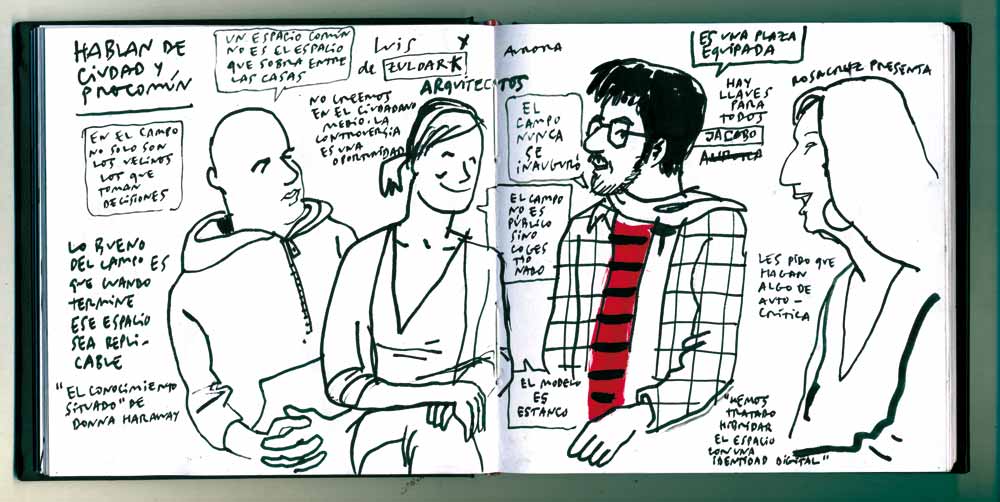 HABLAN DE
CIUDAD Y
PROCOMÚN
UN ESPACIO COMÚN
NO ES EL ESPACIO
QUE SOBRA ENTRE
LAS CASAS
LUIS Y
de ZULOARK
ARQUITECTOS
AURORA
ES UNA PLAZA
EQUIPADA
ROSACRUZ PRESENTA
NO CREEMOS
EN EL CIUDADANO
MEDIO. LA
CONTROVERSIA
ES UNA
OPORTUNIDAD
HAY
LLAVES
PARA
TODOS
JACOBO
AURORA
EN EL CAMPO
NO SOLO SON
LOS VECINOS
LOS QUE
TOMAN
DECISIONES
EL
CAMPO
NUNCA
SE
INAUGURÓ
EL CAMPO
NO ES
PÚBLICO
SINO
COGES
TIO
NADO
LO BUENO
DEL CAMPO ES
QUE CUANDO
TERMINE
ESE ESPACIO
SEA REPLI-
CABLE
LES PIDO QUE
HAGAN
ALGO DE
AUTO-
CRÍTICA
"EL CONOCIMIENTO
SITUADO" DE
DONNA HARAWAY
EL MODELO
ES
ESTANCO
"HEMOS
TRATADO
HIBRIDAR
EL ESPACIO
CON UNA
IDENTIDAD DIGITAL"